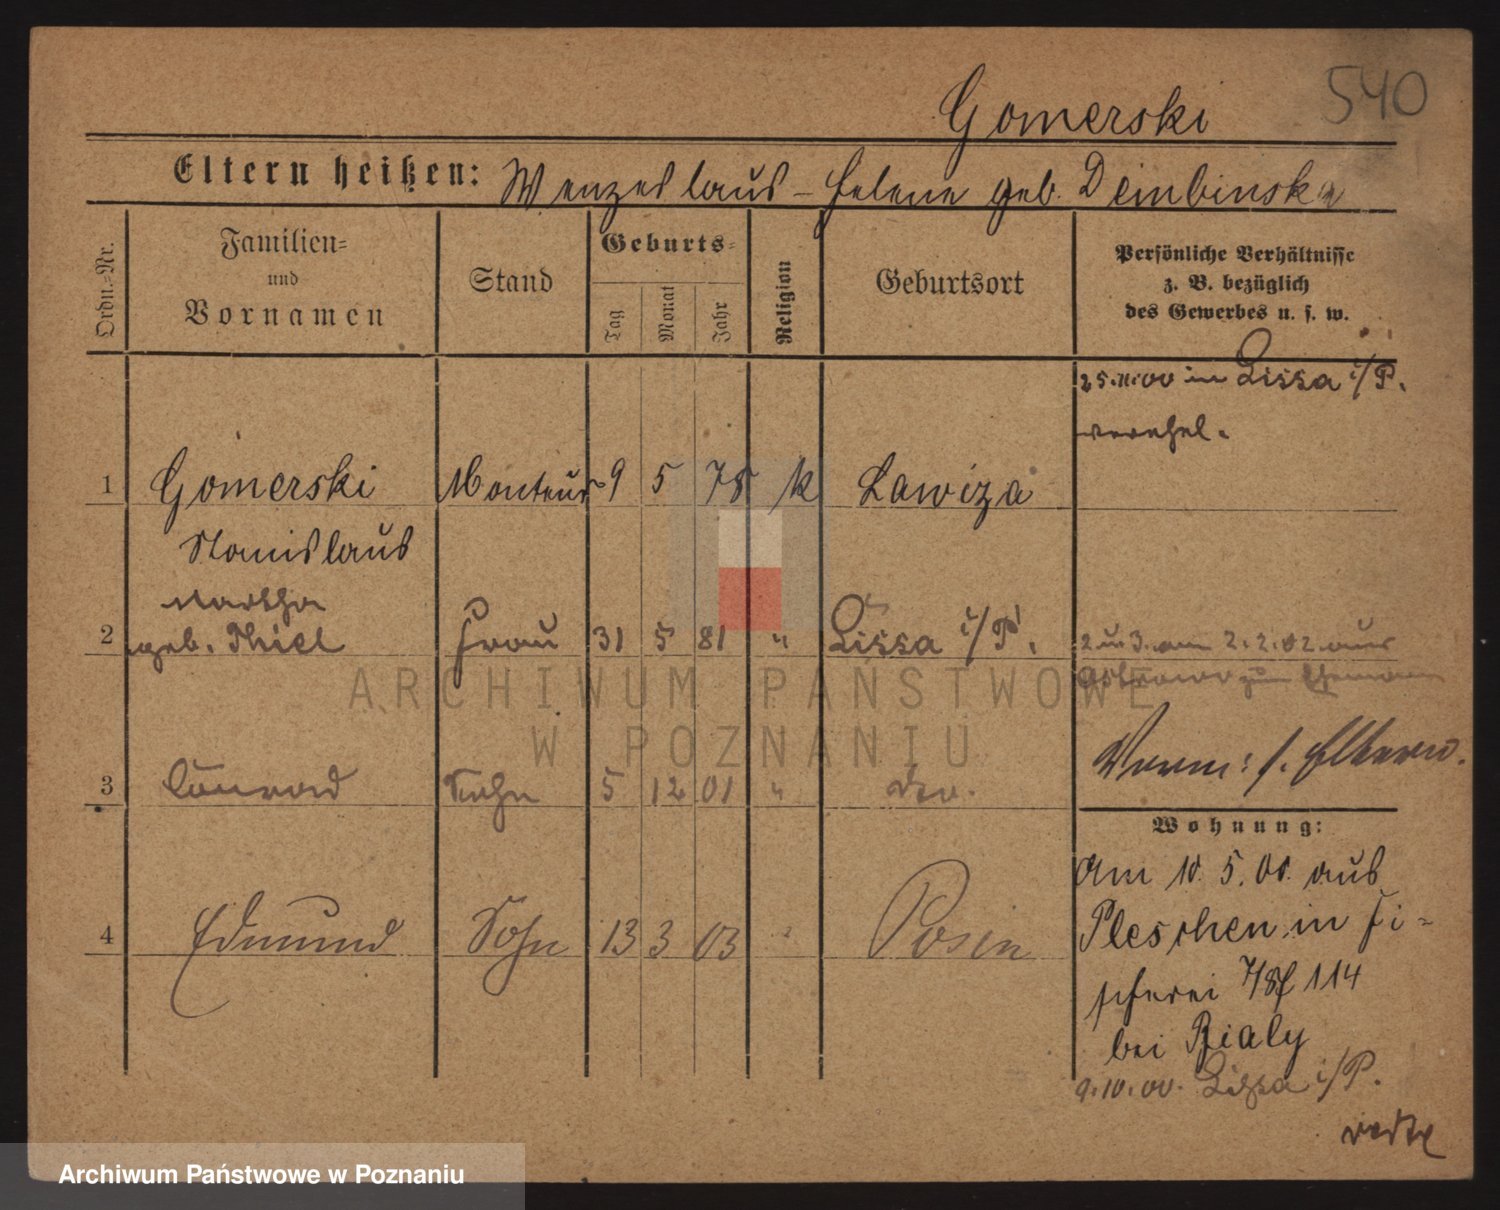 540
Gomerski
Eltern heißen: Wenzeslaus - Helene geb. Dembinska
Ordn.-Nr.
Familien- und Vornamen
Stand
Geburts-
Tag
Monat
Jahr
Religion
Geburtsort
Persönliche Verhältnisse
z. B. bezüglich
des Gewerbes u. s. w.
25.11.00 in Lissa i/P.
verehel.
1 Gomerski Monteur 9 5 78 k Lawiza
Stanislaus
Martha
2 geb. Thiel Frau 31 5 81 " Lissa i/P.
2 u 3. am 2.2.02 aus
zum Ehemann
Verm: s. Eltern.
3 Conrad Sohn 5 12 01 " do.
Wohnung:
Am 10. 5. 00. aus
Pleschen in Fi-
scherei 7/8 114
bei Bialy
9.10.00. Lissa i/P.
verte
4 Edmund Sohn 13 3 03 " Posen
ARCHIWUM PAŃSTWOWE
W POZNANIU
Archiwum Państwowe w Poznaniu